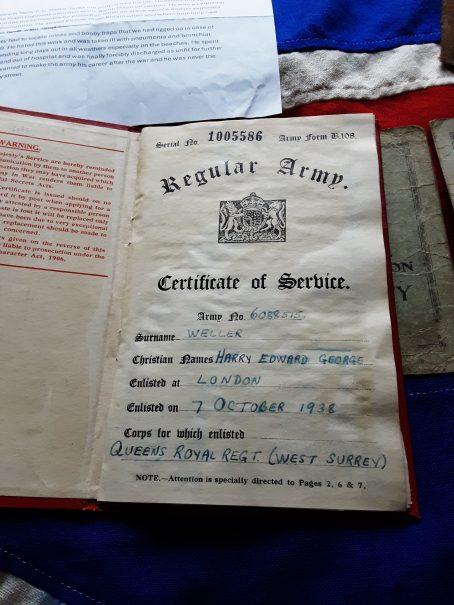 to locate mines and booby traps that we had rigged up in case of
He hated this work and was taken ill with pneumonia and bronchial
long days out in all weathers especially on the beaches. He spent
and out of hospital and was finally forcibly discharged as unfit for further
wanted to make the army his career after the war and he was never the
WARNING.
Majesty's Service are hereby reminded
communication by them to another person
information they may have acquired which
render them liable to
Secrets Acts.
Certificate is issued should on no
it by post when applying for a
attested by a responsible person
lost it will be replaced only
been due to very exceptional
replacement should be made to
concerned.
given on the reverse of this
liable to prosecution under the
Character Act, 1906.
Serial No. 1005586 Army Form B.108.
Regular Army.
Certificate of Service.
Army No. 6088515
Surname WELLER
Christian Names HARRY EDWARD GEORGE
Enlisted at LONDON
Enlisted on 7 OCTOBER 1938
Corps for which enlisted
QUEENS ROYAL REGT. (WEST SURREY)
NOTE.—Attention is specially directed to Pages 2, 6 & 7.
ON
Y